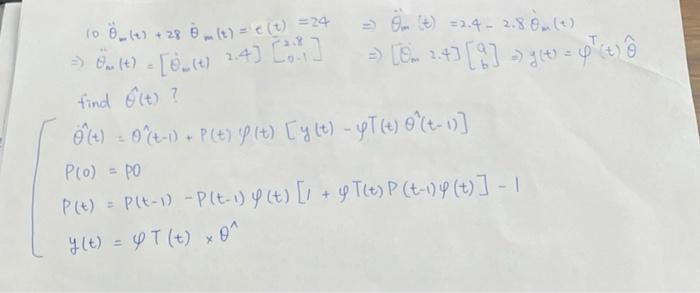 10 θ̈m(t) + 28 θ̇m(t) = e(t) = 24 ⇒ θ̈m(t) = 2.4 - 2.8 θ̇m(t)
⇒ θ̈m(t) = [θ̇m(t) 2.4] [2.8 0.1] ⇒ [θ̇m 2.4] [a b] ⇒ y(t) = φᵀ(t) θ̂
find θ̂(t) ?
θ̂(t) = θ^(t-1) + P(t) φ(t) [y(t) - φT(t) θ^(t-1)]
P(0) = P0
P(t) = P(t-1) - P(t-1) φ(t) [1 + φT(t) P(t-1) φ(t)] - 1
y(t) = φT(t) × θ^